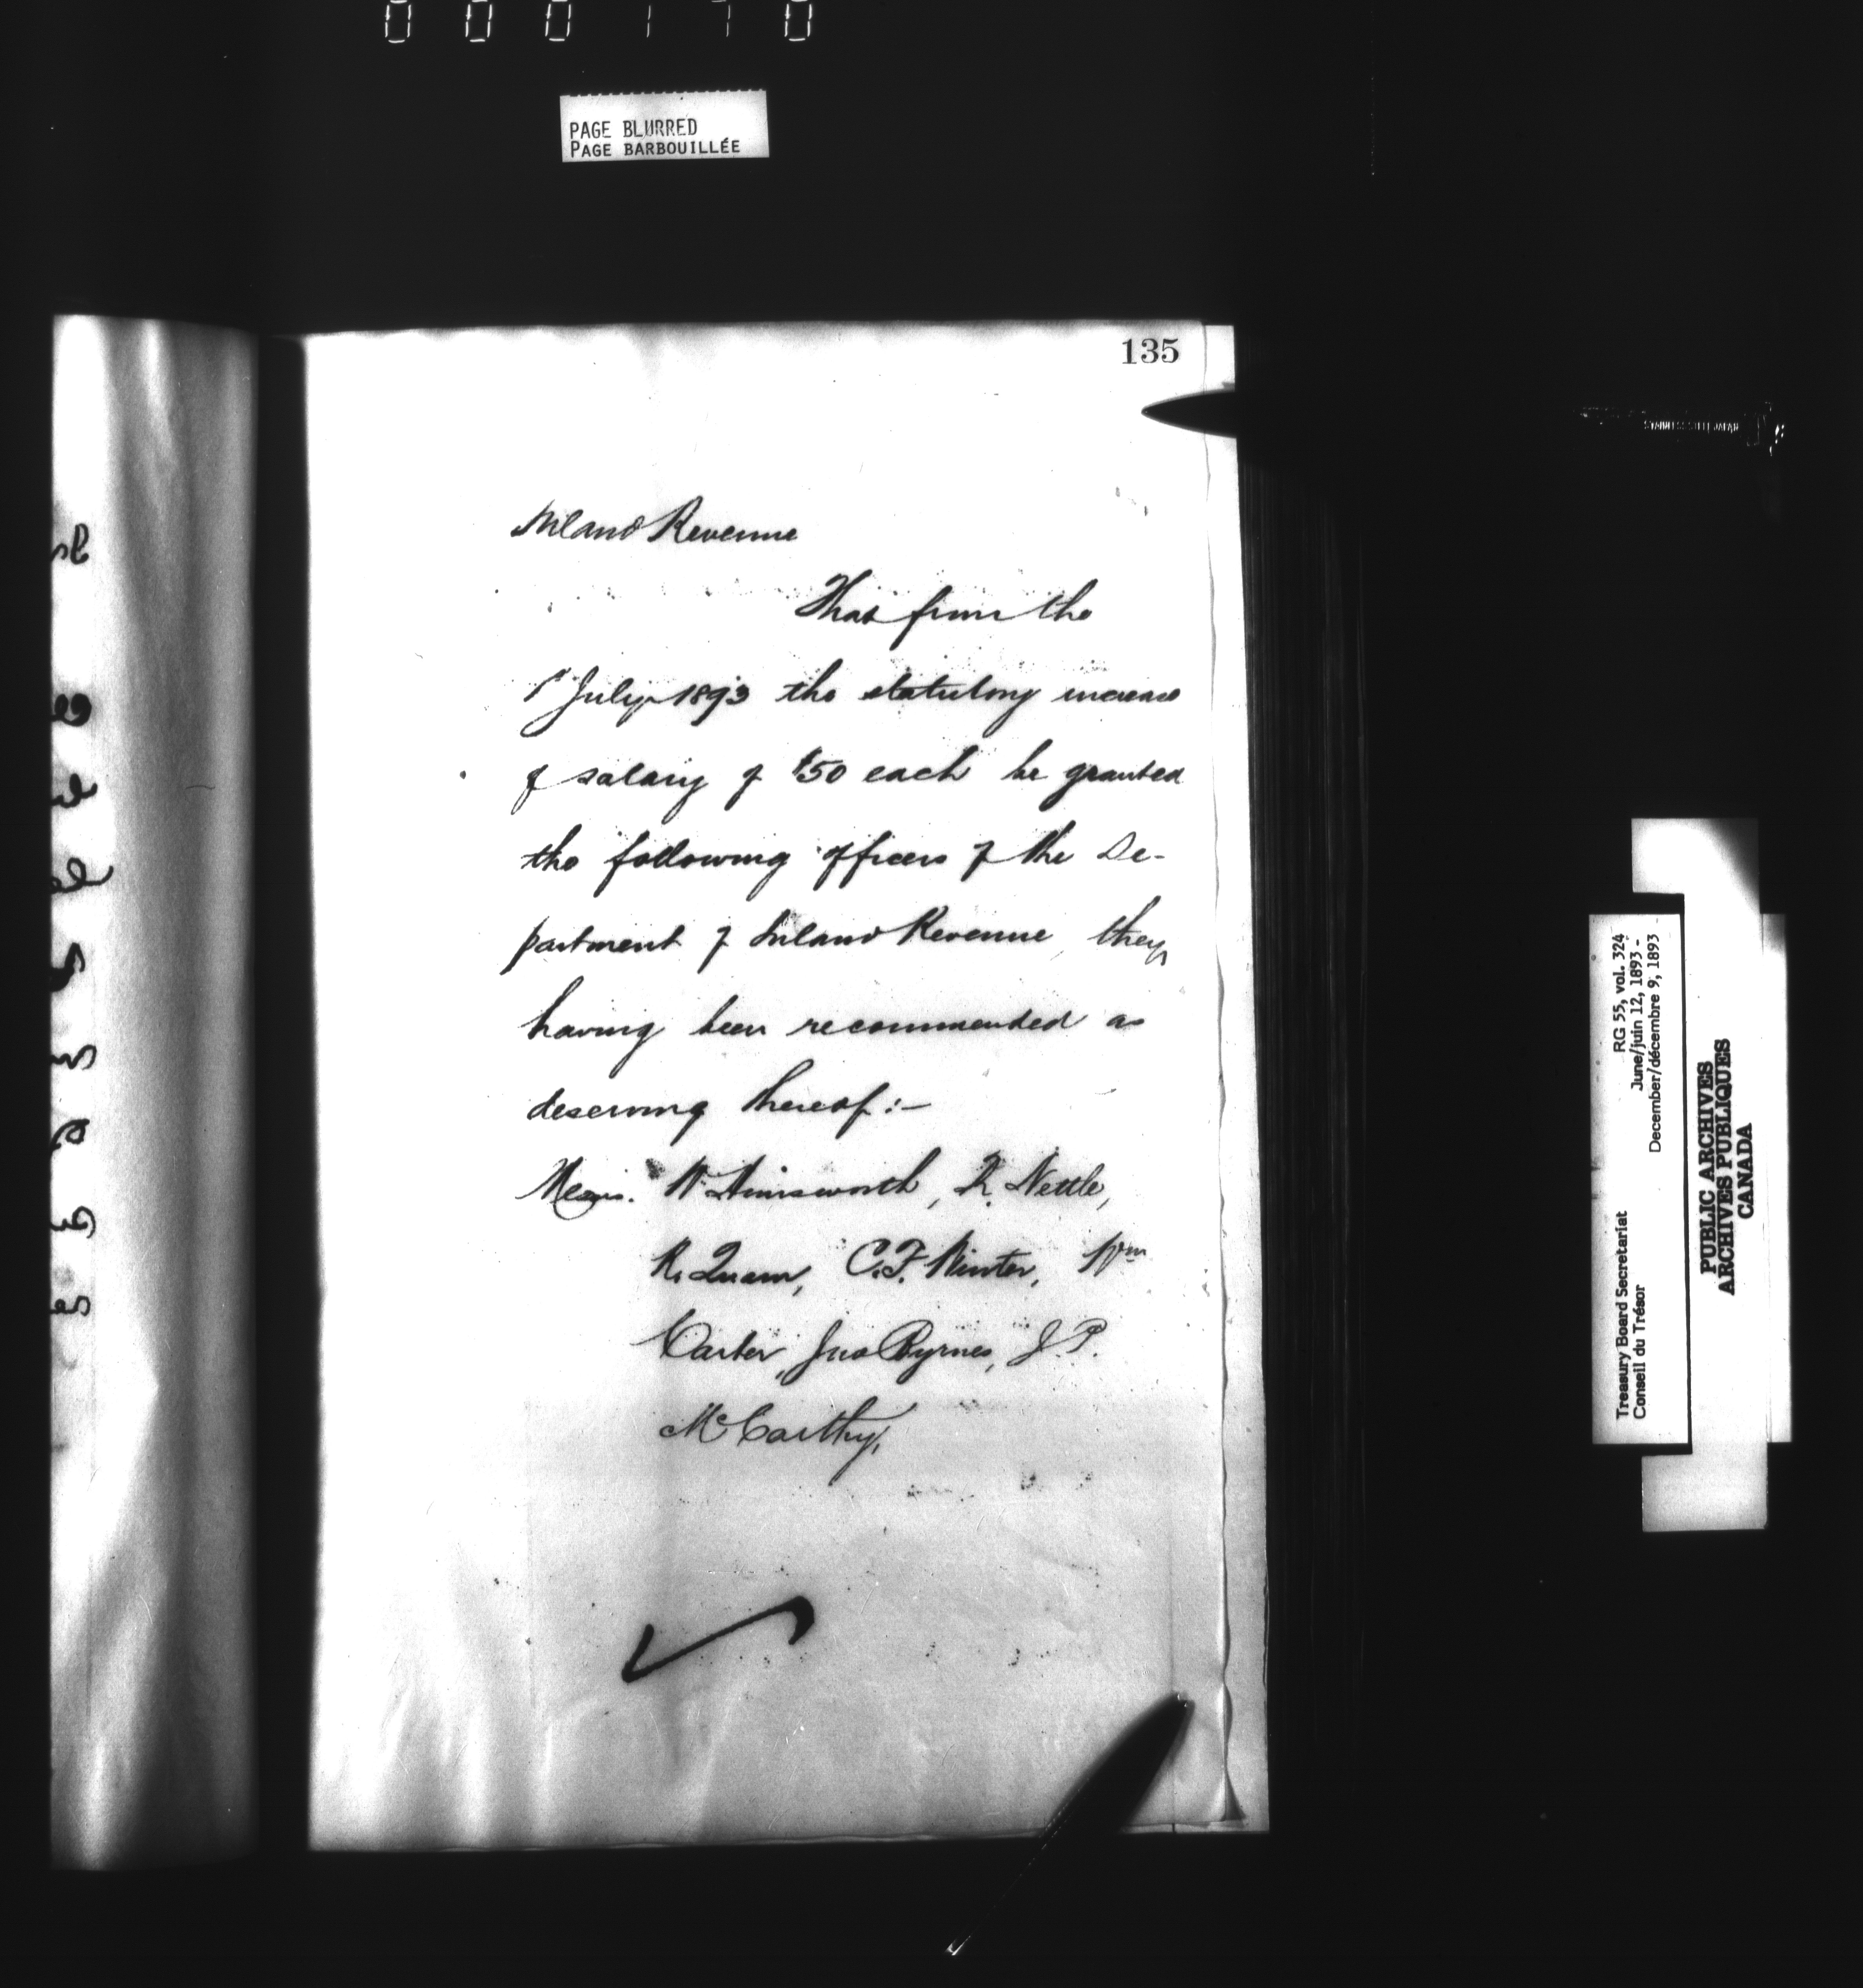 000170
PAGE BLURRED
PAGE BARBOUILLÉE
135
Inland Revenue
That from the
1st July 1893 the statutory increase
of salary of $50 each be granted
the following officers of the De-
partment of Inland Revenue, they
having been recommended as
deserving thereof:-
Messrs. W. Himsworth, R. Nettle,
R. Quain, C.F. Winter, Wm
Carter, Jno Byrnes, J.P.
McCarthy,
RG 55, vol. 324
June/juin 12, 1893 -
December/décembre 9, 1893
Treasury Board Secretariat
Conseil du Trésor
PUBLIC ARCHIVES
ARCHIVES PUBLIQUES
CANADA